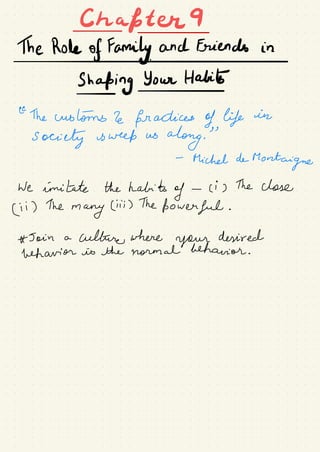 Chapter 9
The Role of Family and Friends in
Shaping Your Habits
"The customs & practices of life in
society sweep us along."
- Michel de Montaigne
We imitate the habits of - (i) The close
(ii) The many (iii) The powerful.
*Join a culture, where your desired
behavior is the normal behavior.